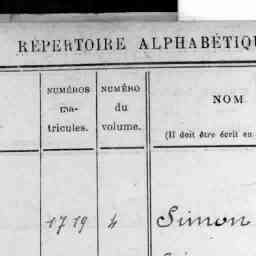 RÉPERTOIRE ALPHABÉTIQU
NUMÉROS
ma-
tricules.
NUMÉRO
du
volume.
NOM
(Il doit être écrit en
1719 4 Simon